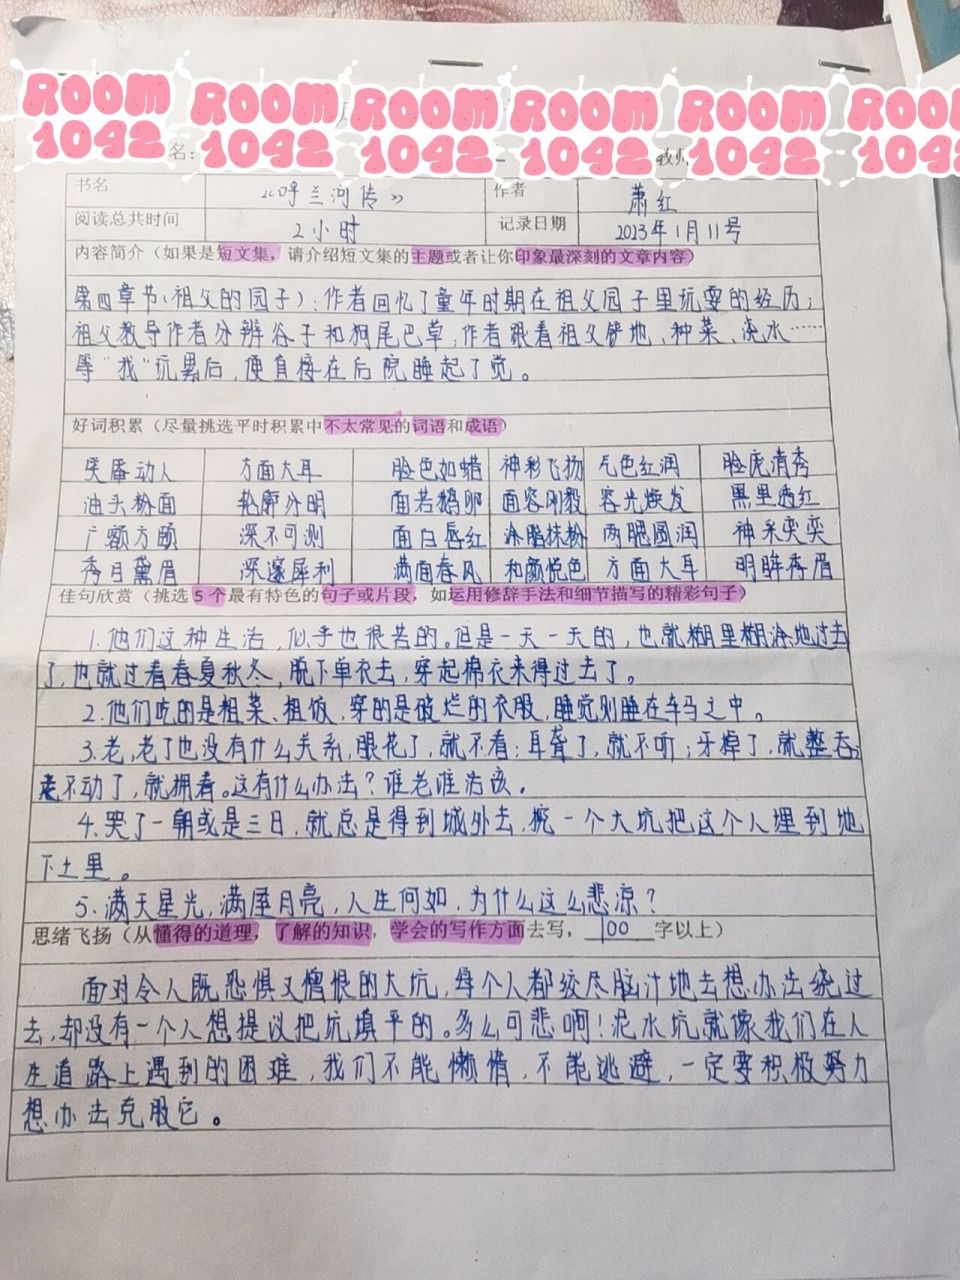 ROOM 1042 ROOM 1042 ROOM 1042 ROOM 1042 ROOM 1042 ROOM 1042
名: 教师
书名 《呼兰河传》 作者 萧红
阅读总共时间 2小时 记录日期 2023年1月11号
内容简介（如果是短文集，请介绍短文集的主题或者让你印象最深刻的文章内容）
第四章节（祖父的园子）：作者回忆了童年时期在祖父园子里玩耍的经历；
祖父教导作者分辨谷子和狗尾巴草，作者跟着祖父铲地、种菜、浇水……
等“我”玩累后，便直接在后院睡起了觉。
好词积累（尽量挑选平时积累中不太常见的词语和成语）
笑靥动人 方面大耳 脸色如蜡 神彩飞扬 气色红润 脸庞清秀
油头粉面 轮廓分明 面若鹅卵 面容刚毅 容光焕发 黑里透红
广额方颐 深不可测 面白唇红 涂脂抹粉 两腮圆润 神采奕奕
秀目黛眉 深邃犀利 满面春风 和颜悦色 方面大耳 明眸秀眉
佳句欣赏（挑选 5 个最有特色的句子或片段，如运用修辞手法和细节描写的精彩句子）
1.他们这种生活，似乎也很苦的。但是一天一天的，也就糊里糊涂地过去
了，也就过着春夏秋冬，脱下单衣去，穿起棉衣来得过去了。
2.他们吃的是粗菜、粗饭，穿的是破烂的衣服，睡觉则睡在车马之中。
3.老，老了也没有什么关系，眼花了，就不看；耳聋了，就不听；牙掉了，就整吞；
走不动了，就拥着。这有什么办法？谁老谁活该。
4.哭了一朝或是三日，就总是得到城外去，挖一个大坑把这个人埋到地
下土里。
5.满天星光，满屋月亮，人生何如，为什么这么悲凉？
思绪飞扬（从懂得的道理，了解的知识，学会的写作方面去写，100字以上）
面对令人既恐惧又憎恨的大坑，每个人都绞尽脑汁地去想办法绕过
去，却没有一个人想提议把坑填平的。多么可悲啊！泥水坑就像我们在人
生道路上遇到的困难，我们不能懒惰，不能逃避，一定要积极努力
想办法克服它。